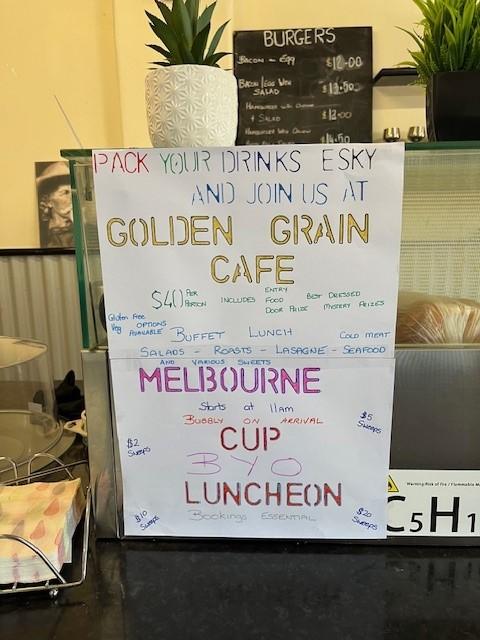 BURGERS
BACON - EGG $12.00
BACON/EGG WITH SALAD $13.50
HAMBURGER WITH CHEESE + SALAD $12.00
HAMBURGER WITH $14.50
PACK YOUR DRINKS ESKY
AND JOIN US AT
GOLDEN GRAIN
CAFE
$40 PER PERSON INCLUDES ENTRY FOOD DOOR PRIZE BEST DRESSED MYSTERY PRIZES
Gluten Free Veg OPTIONS AVAILABLE
BUFFET LUNCH COLD MEAT
SALADS - ROASTS - LASAGNE - SEAFOOD
AND VARIOUS SWEETS
MELBOURNE
Starts at 11am
BUBBLY ON ARRIVAL
$5 Sweeps
CUP
$2 Sweeps
BYO
LUNCHEON
BOOKINGS ESSENTIAL
$10 Sweeps
$20 Sweeps
Warning: Risk of Fire / Flammable
C5H1